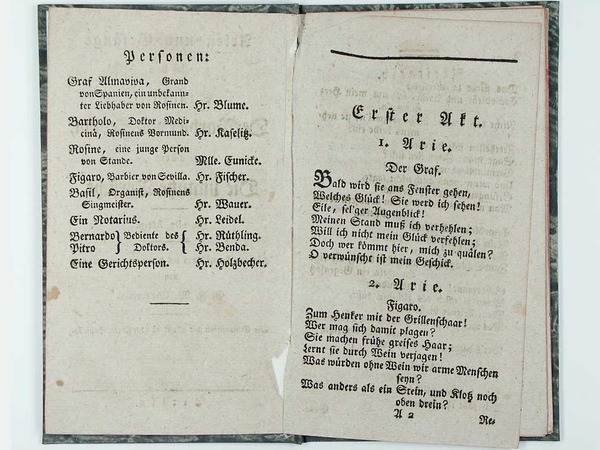 Personen:
Graf Almaviva, Grand
von Spanien, ein unbekann-
ter Liebhaber von Rosinen. Hr. Blume.
Bartholo, Doktor Medi-
cinä, Rosinens Vormund. Hr. Kaselitz.
Rosine, eine junge Person
von Stande. Mlle. Eunicke.
Figaro, Barbier von Sevilla. Hr. Fischer.
Basil, Organist, Rosinens
Singmeister. Hr. Wauer.
Ein Notarius. Hr. Leidel.
Bernardo } Bediente des { Hr. Rüthling.
Pitro } Doktors. { Hr. Benda.
Eine Gerichtsperson. Hr. Holzbecher.
Erster Akt.
1. Arie.
Der Graf.
Bald wird sie ans Fenster gehen,
Welches Glück! Sie werd ich sehen!
Eile, sel'ger Augenblick!
Meinen Stand muß ich verhehlen;
Will ich nicht mein Glück verfehlen;
Doch wer kömmt hier, mich zu quälen?
O verwünscht ist mein Geschick.
2. Arie.
Figaro.
Zum Henker mit der Grillenschaar!
Wer mag sich damit plagen?
Sie machen frühe greises Haar;
Lernt sie durch Wein verjagen!
Was würden ohne Wein wir arme Menschen
seyn?
Was anders als ein Stein, und Klotz noch
oben drein?
A 2 Re-